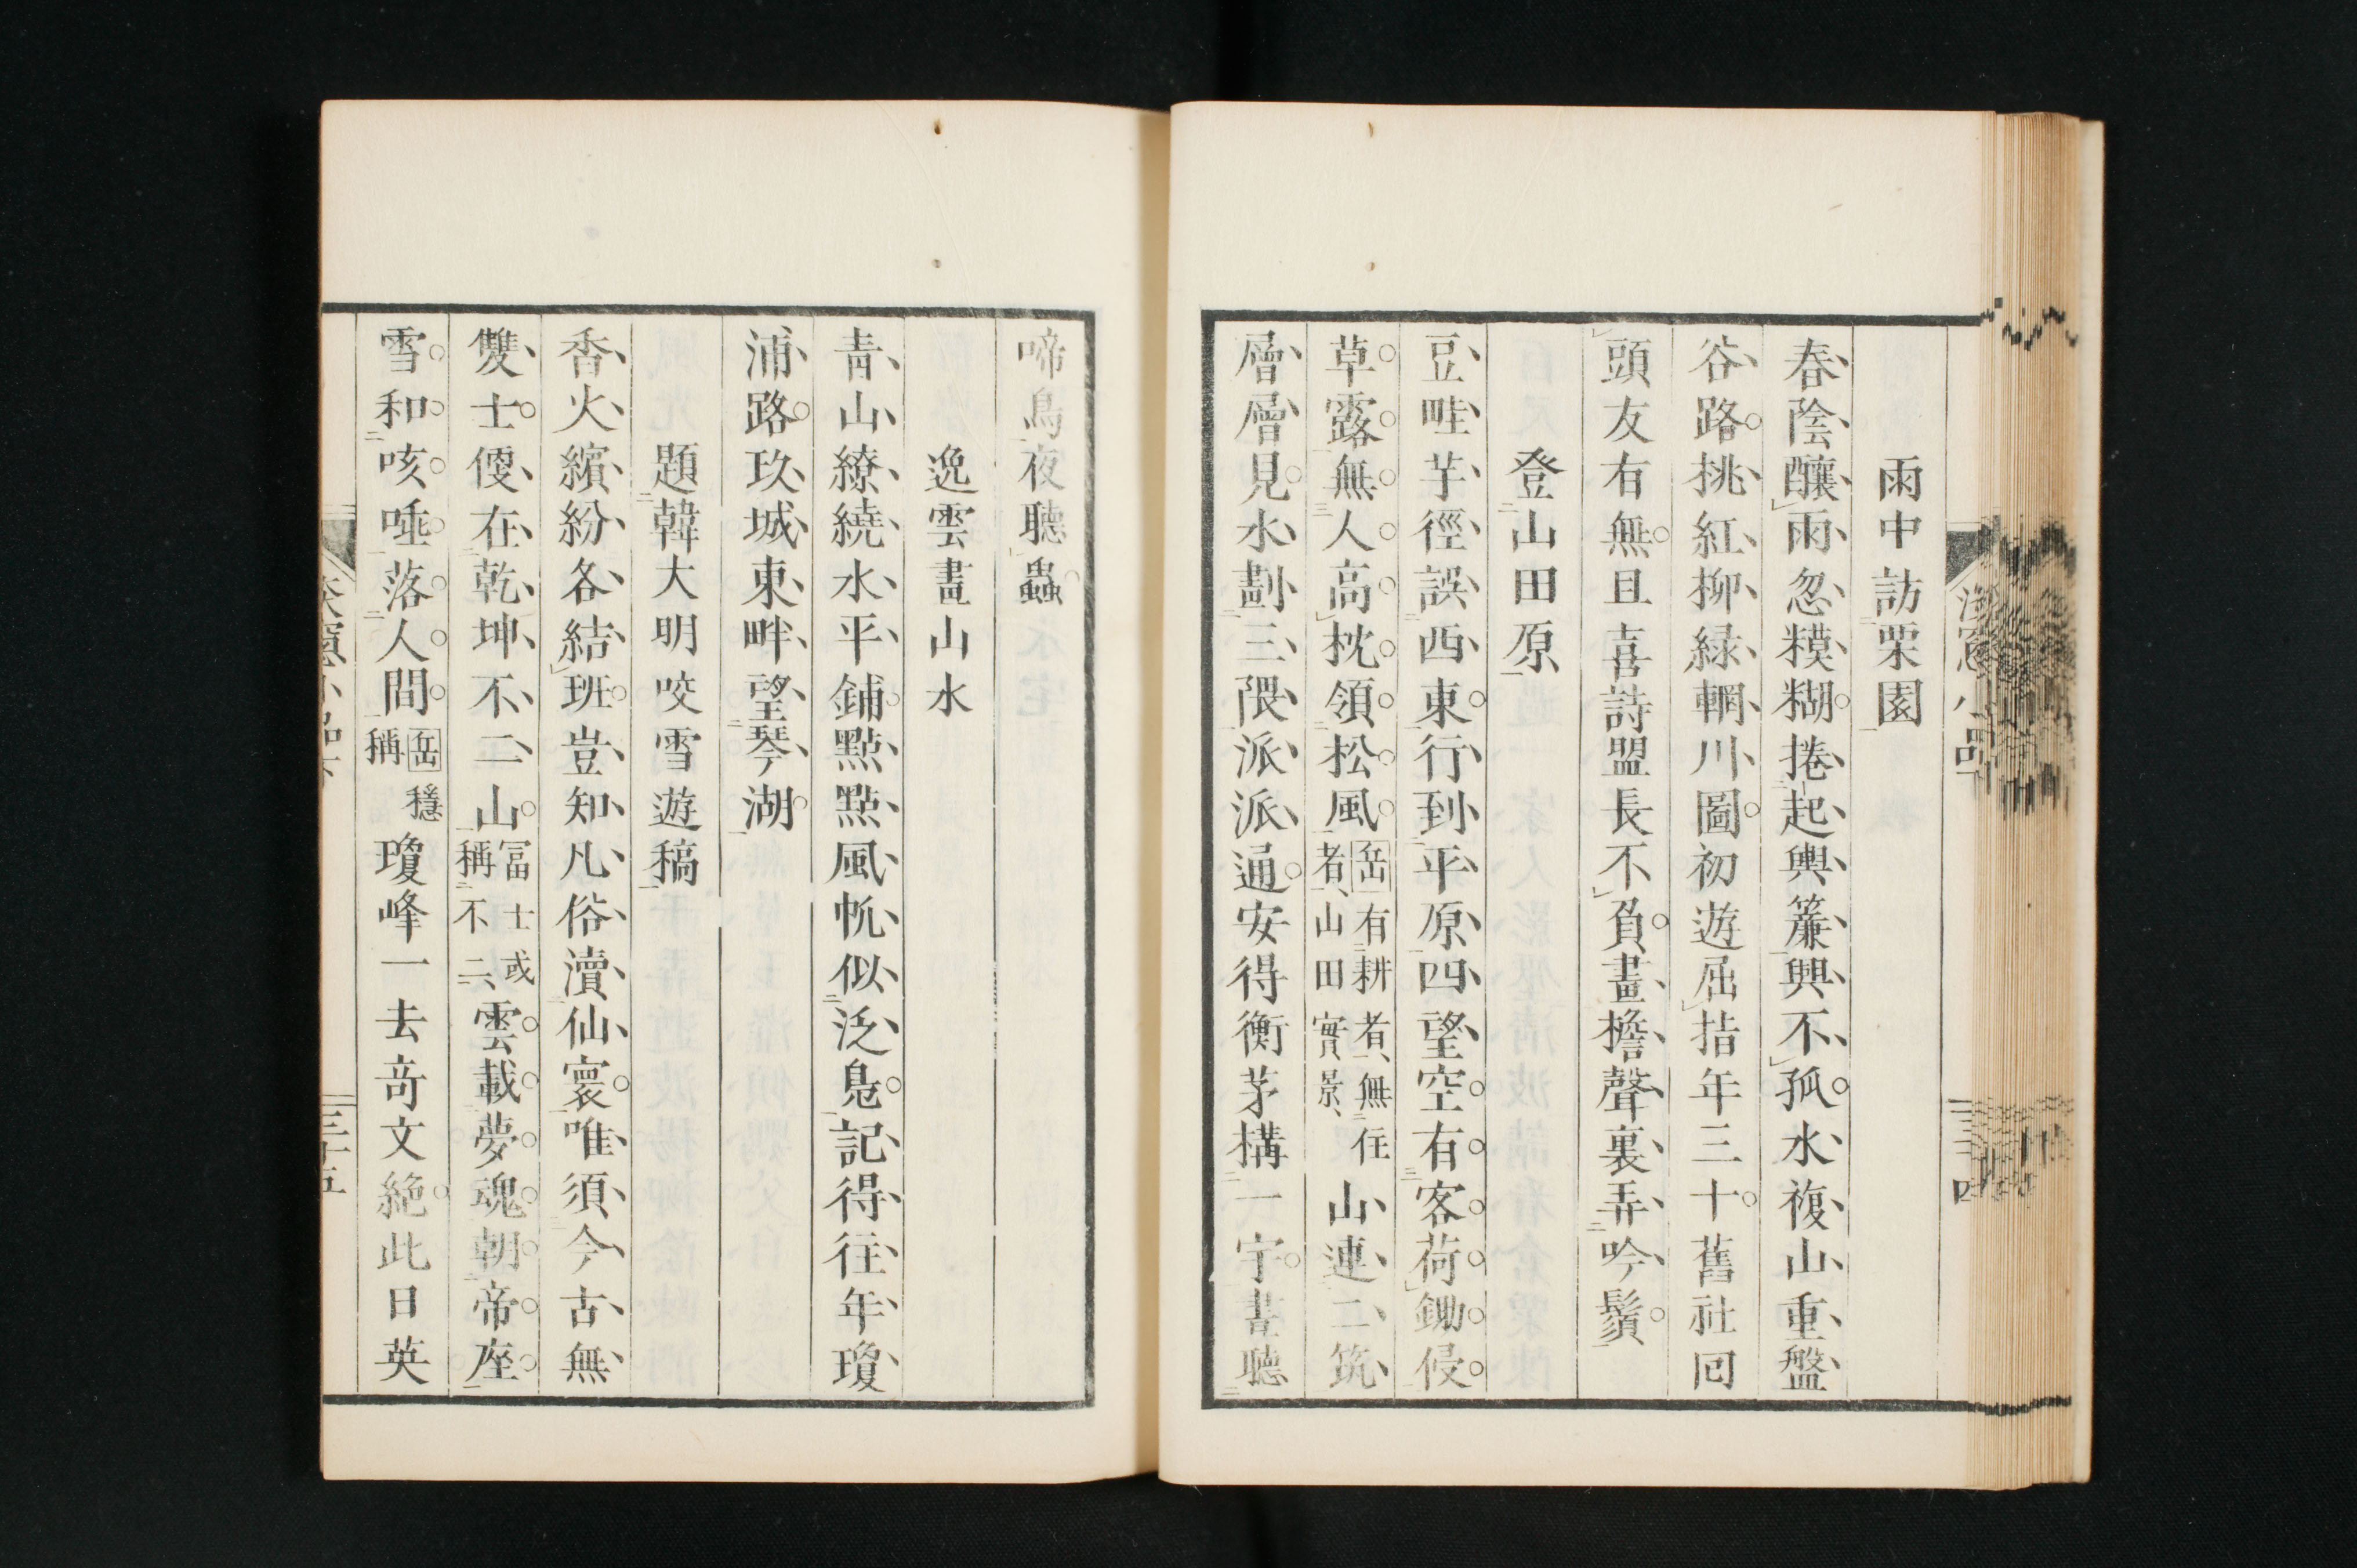 雨中訪栗園
春陰釀雨忽糢糊捲起輿簾興不孤水複山重盤
谷路桃紅柳綠輞川圖初遊屈指年三十舊社回
頭友有無且喜詩盟長不負畫檐聲裏弄吟鬚
登山田原
豆畦芋徑誤西東行到平原四望空有客荷鋤侵
草露無人高枕領松風岳有耕者、無住者、山田實景、山連二筑
層層見水劃三隈派派通安得衡茅構一宇晝聽
啼鳥夜聽蟲
逸雲畫山水
青山繚繞水平鋪點點風帆似泛鳧記得往年瓊
浦路玖城東畔望琴湖
題韓大明咬雪遊稿
香火繽紛各結班豈知凡俗瀆仙寰唯須今古無
雙士便在乾坤不二山冨士或稱不二、雲載夢魂朝帝座
雪和咳唾落人間岳穩稱瓊峰一去奇文絕此日英
三十五